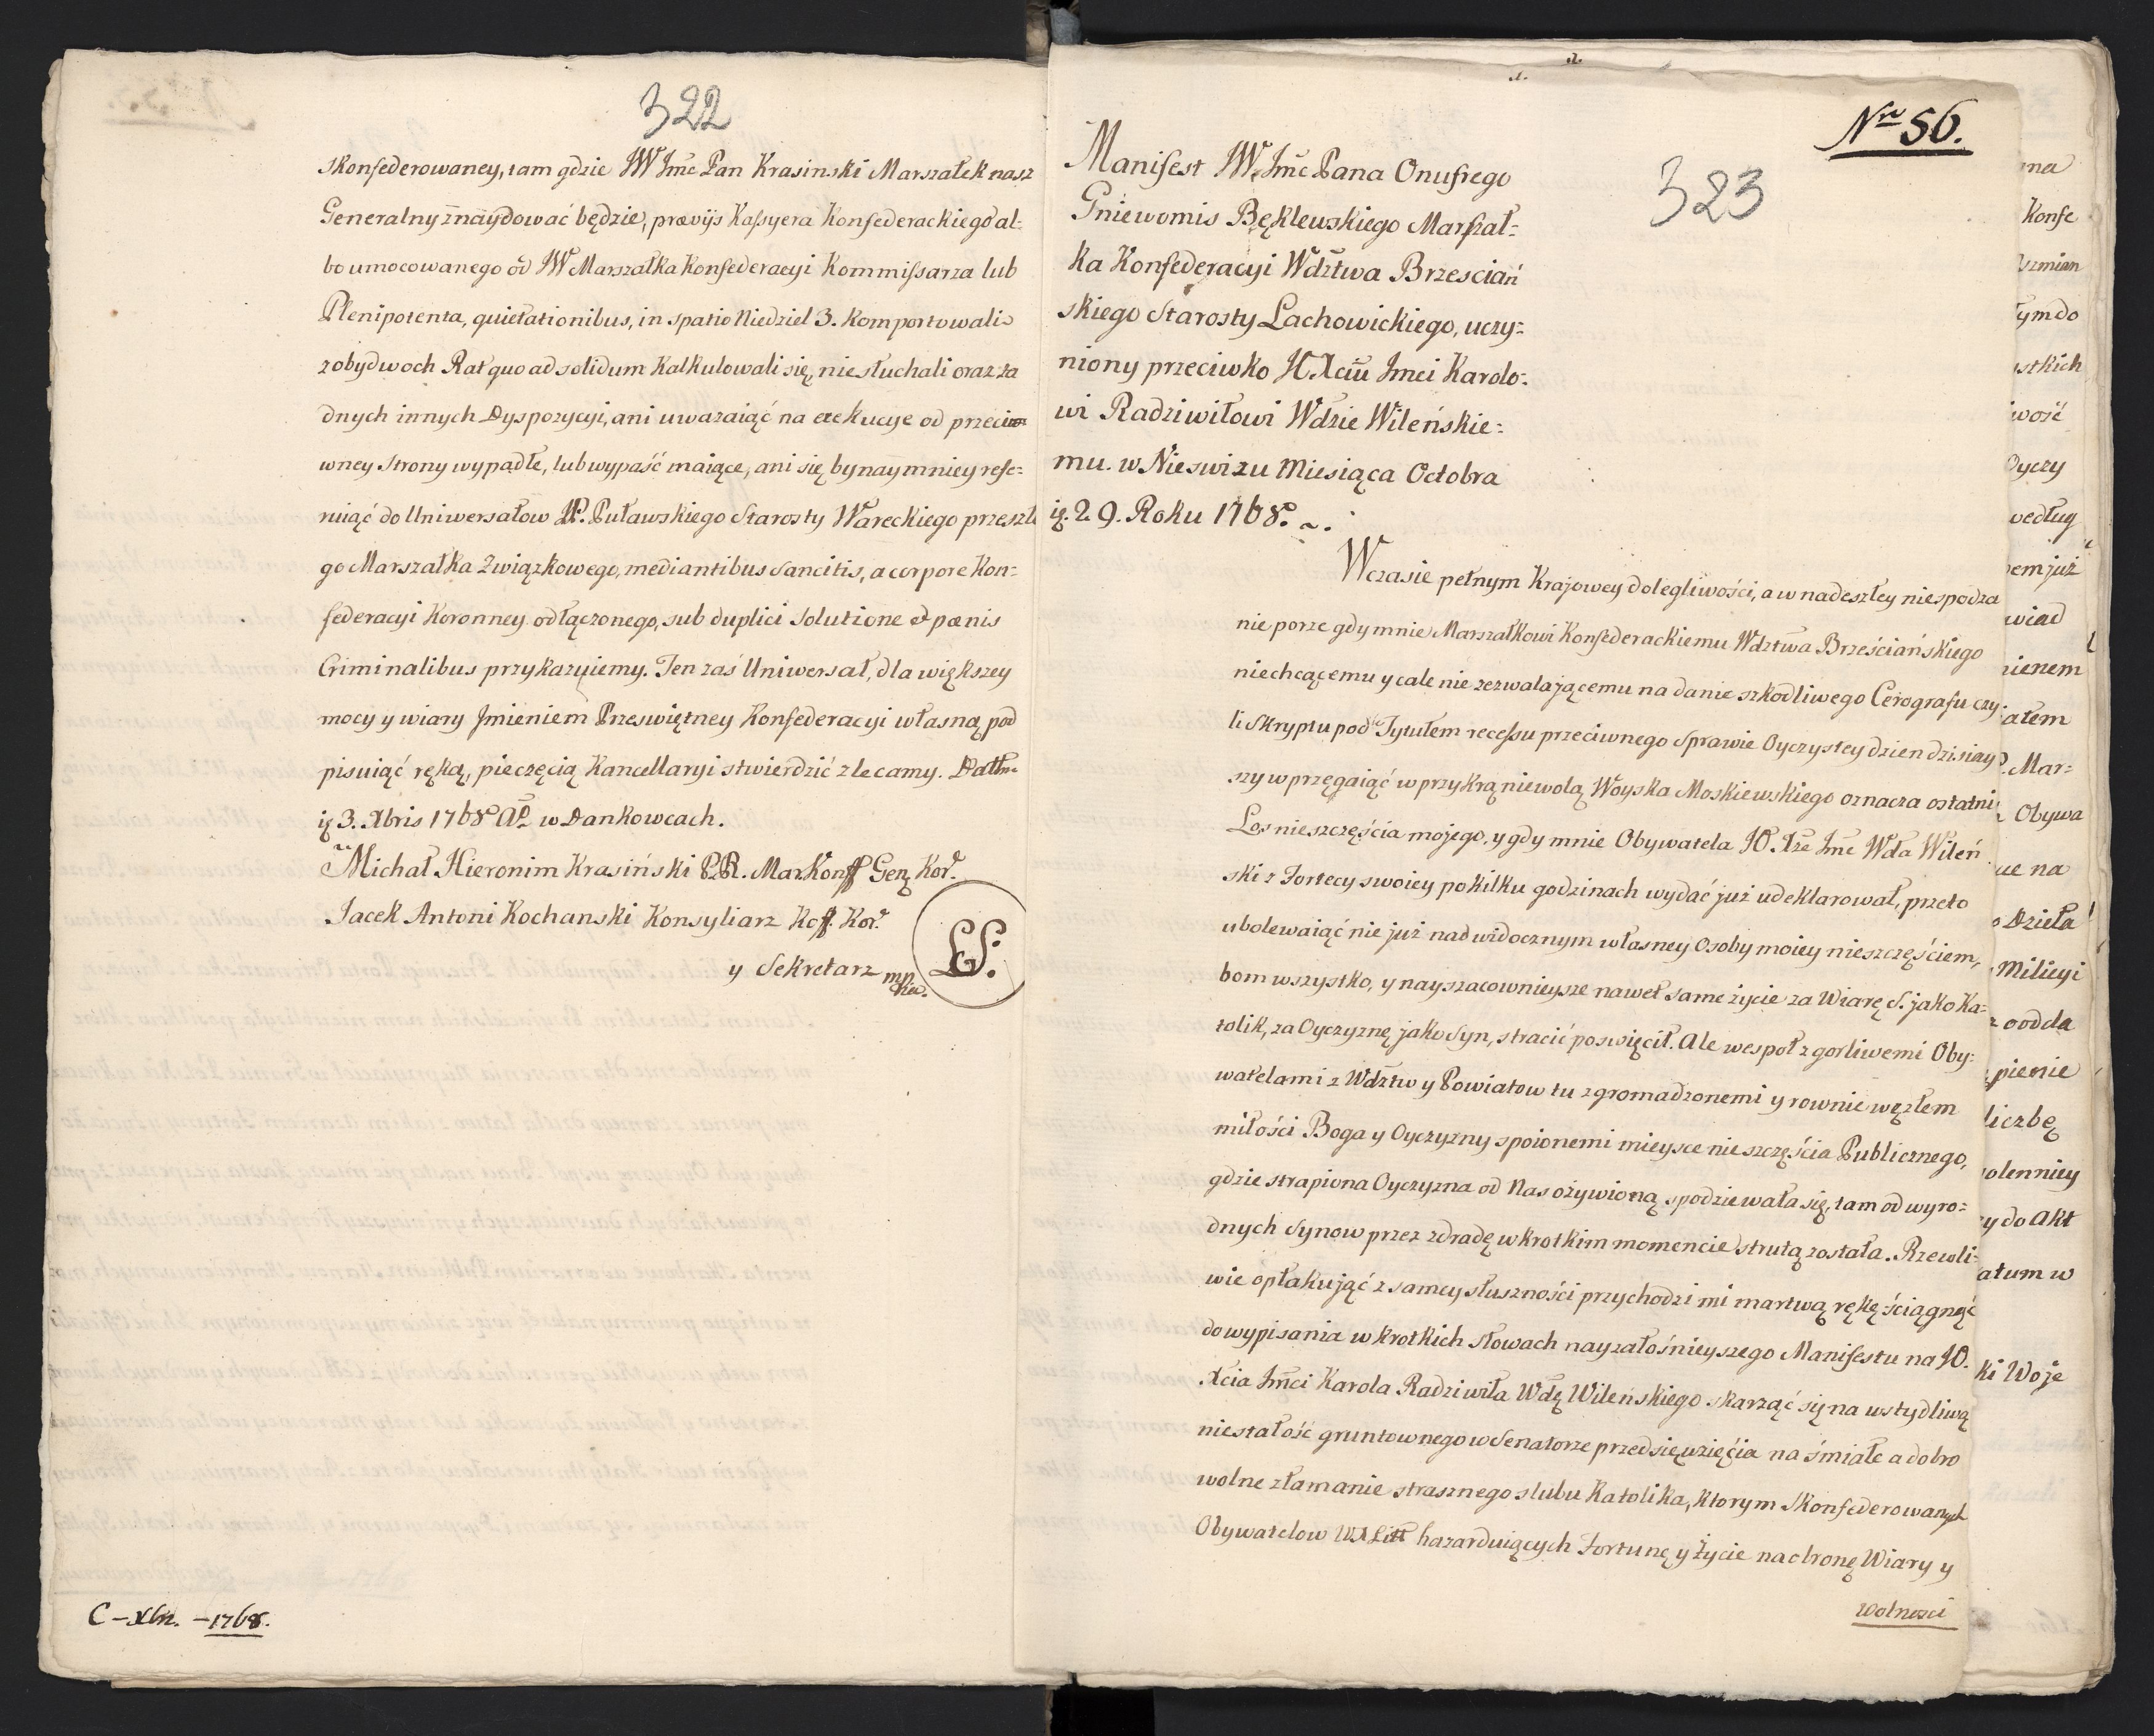 322
skonfederowaney, tam gdzie JW Jmć Pan Krasinski Marszałek nasz
Generalny znaydować będzie, prævijs Kaſsyera Konfederackiego al-
bo umocowanego od JW Marszałka Konfederacyi Kommiſsarza lub
Plenipotenta, quietationibus, in spatio Niedziel 3. komportowali
z obydwoch Rat quo ad solidum kalkulowali się, niesłuchali oraz ża
dnych innych Dyspozycyi, ani uwazaiąć na exekucye od przeci
wney Strony wypadłe, lub wypaść maiące, ani się bynaymniey refe=
ruiąć do Uniwersałow P. Puławskiego Starosty Wareckiego przeszłe
go Marszałka Związkowego, mediantibus Sancitis, a corpore Kon=
federacyi Koronney odłączonego, sub duplici Solutione et pœnis
Criminalibus przykazuiemy. Ten zaś Uniwersał, dla większey
mocy y wiary Jmieniem Przeświętney Konfederacyi własną pod
pisuiąć ręką, pieczęcią Kancellaryi stwierdzić zlecamy. Dattm
ię 3. Xbris 1768 Aᵒ w Dankowcach.
Michał Hieronim Krasiński P.R. Mar. Konff Gen. Kor.
Jacek Antoni Kochanski Konsyliarz Koff. Kor.
y Sekretarz mp
LS.
C – Xbr. – 1768.
Nro 56.
323
Manifest JW, Jmć Pana Onufrego
Gniewomis Bęklewskiego Marſzał=
ka Konfederacyi Wdztwa Brzescian
skiego Starosty Lachowickiego, uczy=
niony przeciwko JO. Xciu Jmci Karolo=
wi Radziwiłowi Wdzie Wileńskie=
mu. w Nieswizu Miesiąca Octobra
ię. 29. Roku 1768.
W czasie pełnym Krajowey dolegliwości, a w nadeszłey niespodza
nie porze gdy mnie Marszałkowi Konfederackiemu Wdztwa Brześciańskiego
niechcącemu y cale nie zezwalającemu na danie szkodliwego Cerografu czy
li Skryptu pod Tytułem receſsu przeciwnego Sprawie Oyczystey dzien dzisiay
szy w przęgaiąć w przykrą niewolą Woyska Moskiewskiego oznacza ostatni
Los nieszczęścia mojego, y gdy mnie Obywatela JO. Xże Jmć Wda Wileń
ski z Fortecy swoiey po kilku godzinach wydać już udeklarował, przeto
ubolewaiąć nie już nad widocznym własney Osoby moiey nieszczęściem,
bom wszystko, y nayszacownieysze nawet same życie za Wiarę S. jako Ka=
tolik, za Oyczyznę jako Syn, stracić poswięcił. Ale wespoł z gorliwemi Oby=
watelami z Wdztw y Powiatow tu zgromadzonemi y rownie węzłem
miłości Boga y Oyczyzny spoionemi mieysce nieszczęścia Publicznego,
gdzie strapiona Oyczyzna od Nas ożywioną spodziewała się, tam od wyro=
dnych Synow przez zdradę w krotkim momencie strutą została. Rzewli=
wie opłakująć z samey słuszności przychodzi mi martwą rękę ściągnąć
do wypisania w krotkich słowach nayzałośnieyszego Manifestu na JO.
Xcia Jmci Karola Radziwiła Wdę Wileńskiego skarząć się na wstydliwą
niestałość gruntownego w Senatorze przedsięwzięcia na śmiałe a dobro
wolne złamanie strasznego slubu Katolika, ktorym Skonfederowanych
Obywatelow WXLitt hazarduiących Fortunę y Życie na obronę Wiary y
wolnosci
na
Konfe
szmian
Tym do
stkich
iwość
Oyczy
według
em już
wiad
nienem
ałem
Mar=
Obywa
ue na
Dzieła
Milicyi
oodda
pienie
liczbę
olenniey
y do Akt
atum w
ki Woje